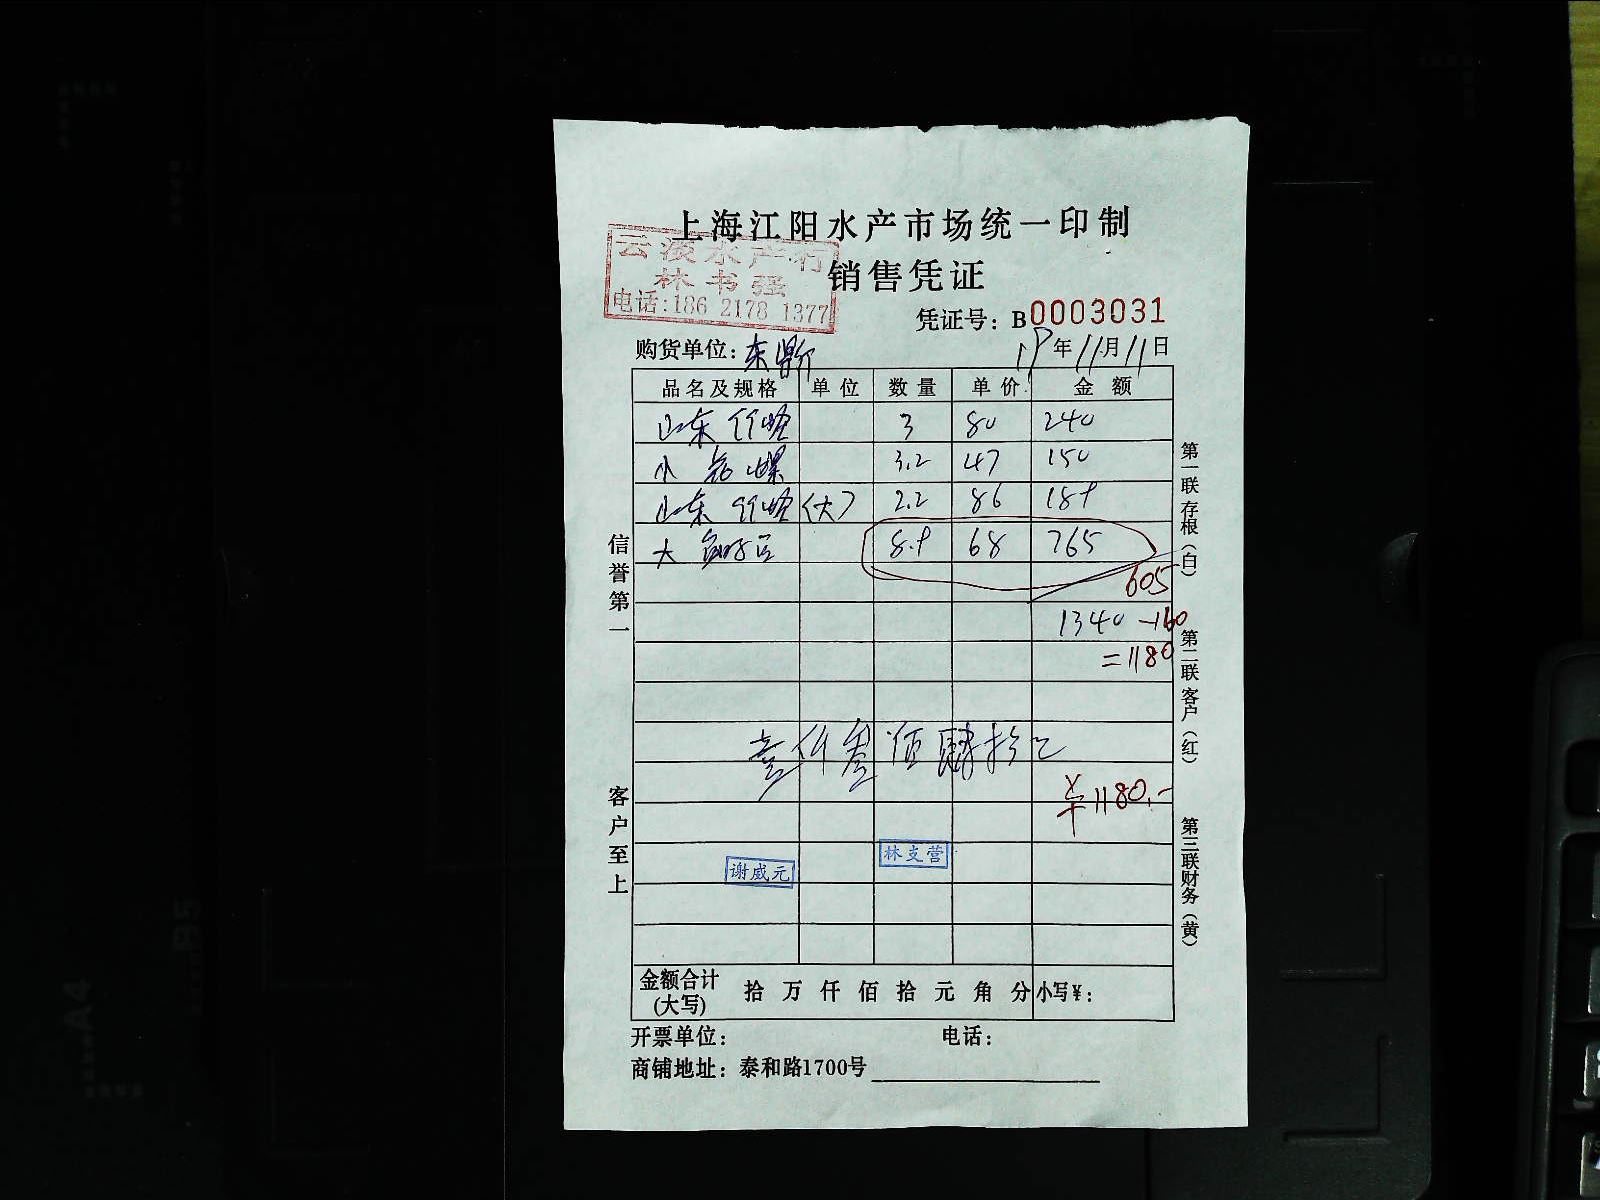 上海江阳水产市场统一印制
云淡水产行
林书强
电话:186 2178 1377
销售凭证
凭证号: B0003031
购货单位: 东
19年11月11日
品名及规格 单位 数量 单价 金额
山东竹蛏 3 80 240
小 螺 3.2 47 150
山东竹蛏(大) 2.2 86 189
大 8.9 68 765
605
1340 -160
=1180
壹仟叁佰肆拾元
¥1180.-
谢威元 林支营
金额合计(大写) 拾 万 仟 佰 拾 元 角 分 小写¥:
开票单位: 电话:
商铺地址: 泰和路1700号
信誉第一 客户至上
第一联存根(白) 第二联客户(红) 第三联财务(黄)